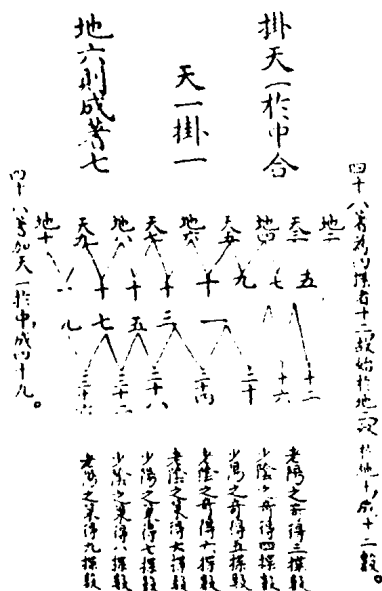 掛天一於中合
天一掛一
地六則成蓍七
四十八蓍為四揲者十二故始於地二終於地十成十二數。
地二
天三
地四
天五
地六
天七
地八
天九
地十
五
七
九
十一
十三
十五
十七
十九
十二
十六
二十
二十四
二十八
三十二
三十六
老陽之奇得三揲數
少陰之奇得四揲數
少陽之奇得五揲數
老陰之奇得六揲數
老陰之策得六揲數
少陽之策得七揲數
少陰之策得八揲數
老陽之策得九揲數
四十八蓍加天一於中，成四十九。